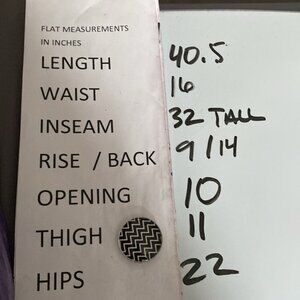 FLAT MEASUREMENTS
IN INCHES
LENGTH 40.5
WAIST 16
INSEAM 32 TALL
RISE / BACK 9/14
OPENING 10
THIGH 11
HIPS 22